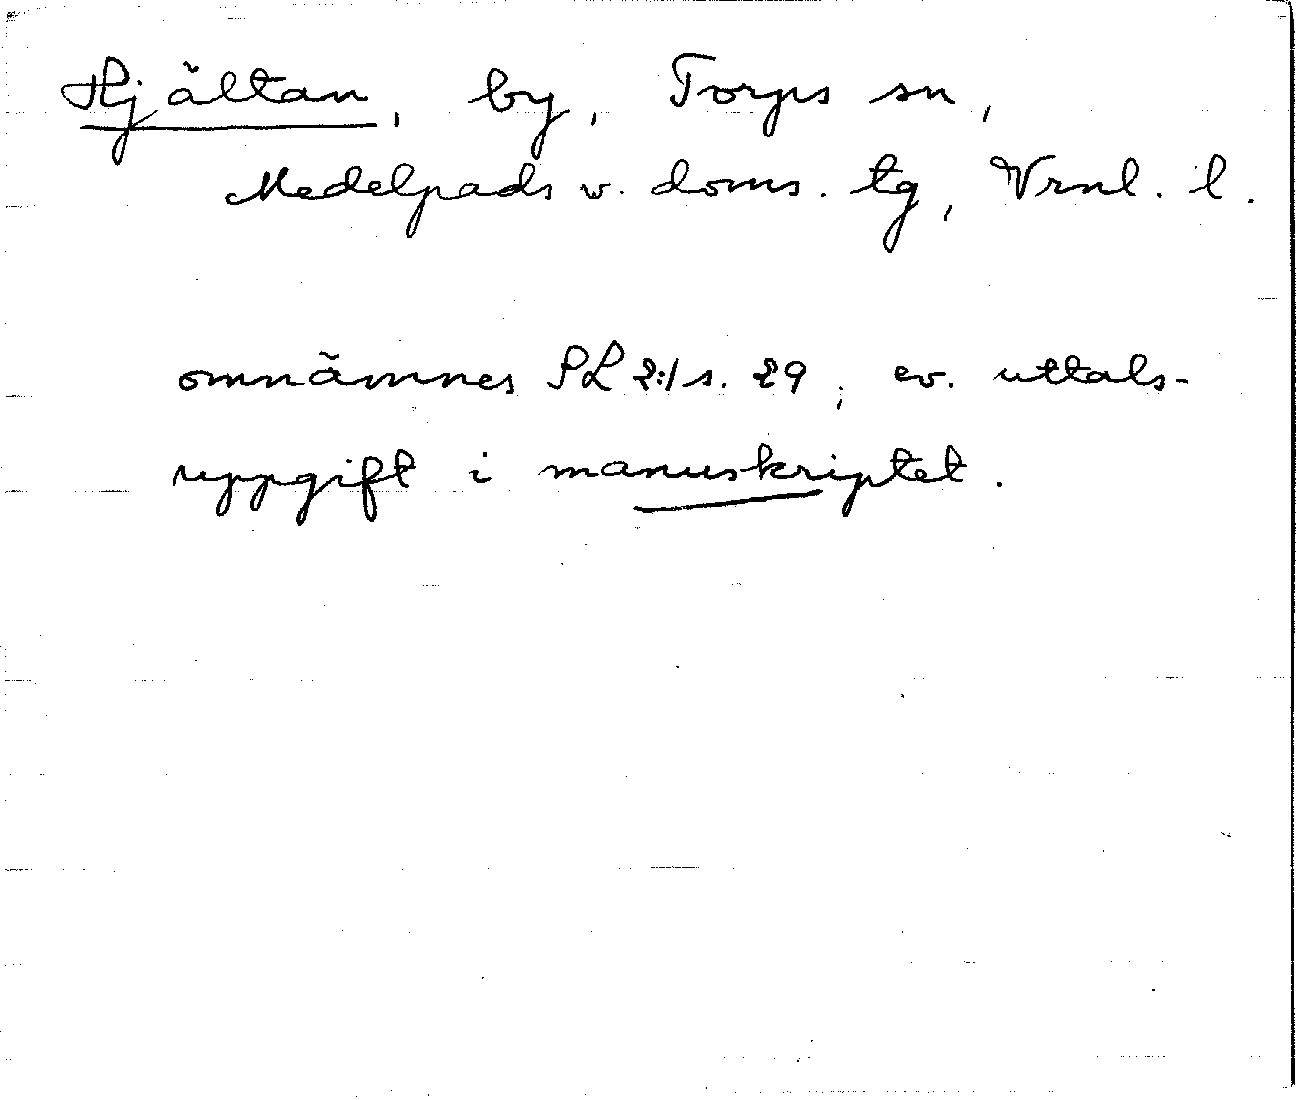 Hjältan, by, Torps sn,
Medelpads v. doms. tg, Vrnl. l.
omnämnes PL 2:1 s. 29; ev. uttals-
uppgift i manuskriptet.